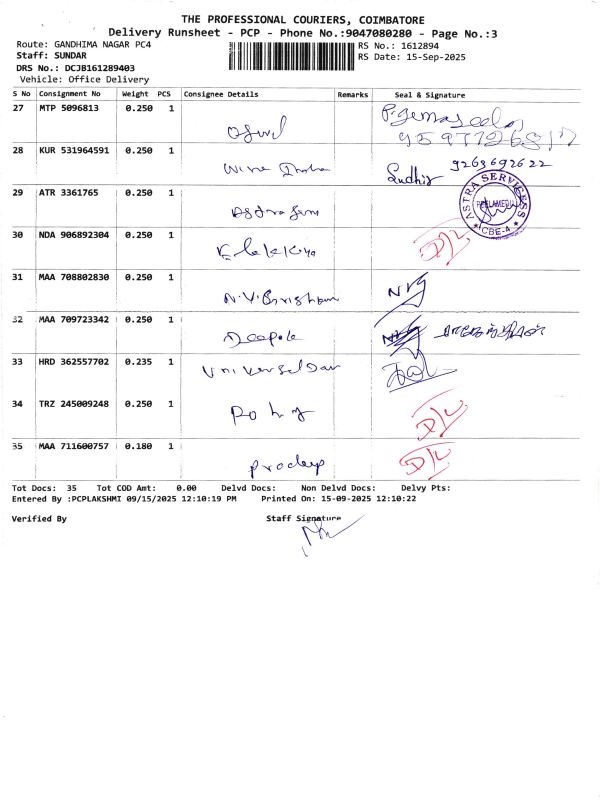 THE PROFESSIONAL COURIERS, COIMBATORE
Delivery Runsheet - PCP - Phone No.:9047080280 - Page No.:3
Route: GANDHIMA NAGAR PC4
RS No.: 1612894
Staff: SUNDAR
RS Date: 15-Sep-2025
DRS No.: DCJB161289403
Vehicle: Office Delivery
S No Consignment No Weight PCS Consignee Details Remarks Seal & Signature
27 MTP 5096813 0.250 1
28 KUR 531964591 0.250 1
9263692622
Sudhir
29 ATR 3361765 0.250 1
ASTRA SERVICES
PEELAMEDU
CBE-4
30 NDA 906892304 0.250 1
D/L
31 MAA 708802830 0.250 1
32 MAA 709723342 0.250 1
Deepak
33 HRD 362557702 0.235 1
34 TRZ 245009248 0.250 1
D/L
35 MAA 711600757 0.180 1
Pradeep
D/L
Tot Docs: 35 Tot COD Amt: 0.00 Delvd Docs: Non Delvd Docs: Delvy Pts:
Entered By :PCPLAKSHMI 09/15/2025 12:10:19 PM Printed On: 15-09-2025 12:10:22
Verified By Staff Signature